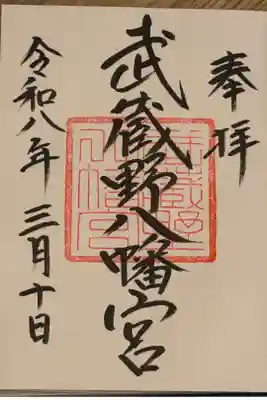 奉拝
武蔵野八幡宮
令和八年三月十日
武蔵野
八幡宮